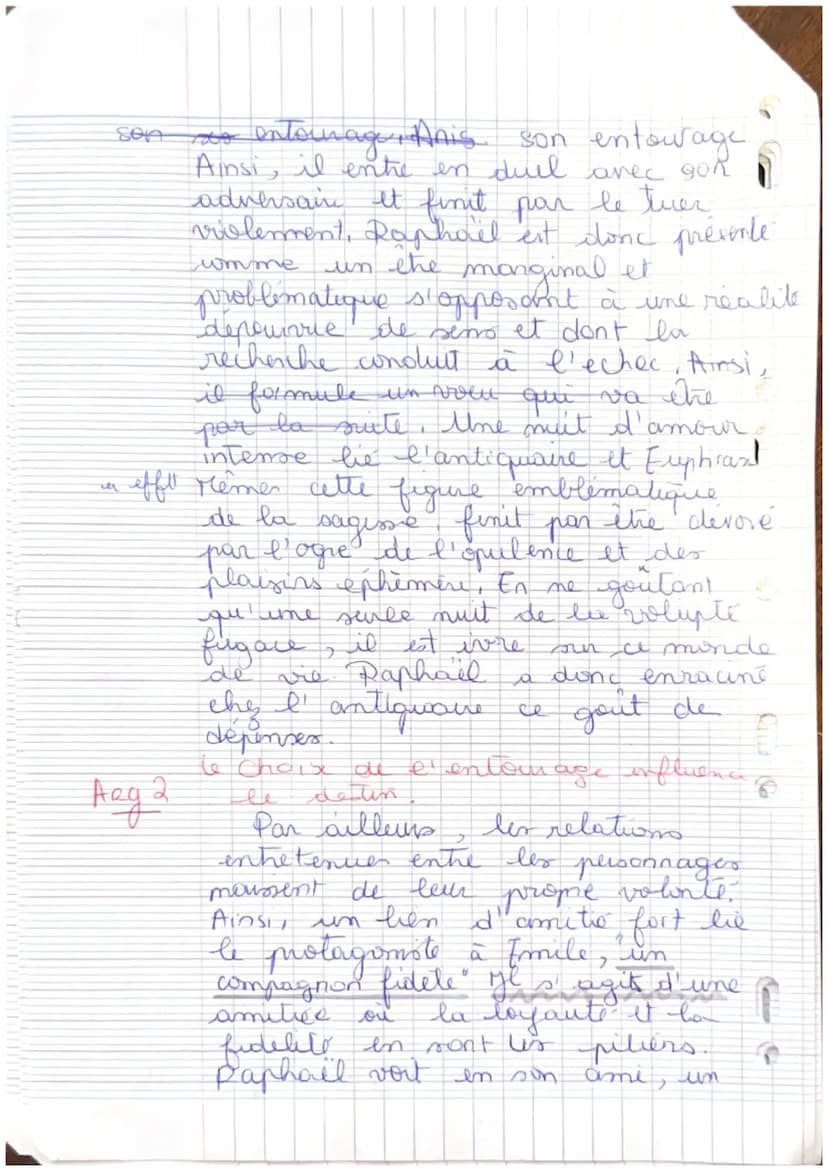 son entourage, Anis son entourage
Ainsi, il entre en duel avec son
adversair et finit par le tuer
violemment. Raphaël est donc présenté
comme un être marginal et
problématique s'opposant à une réalité
dépourvue de sens et dont la
recherche conduit à l'echec. Ainsi,
il formule un voeu qui va être
par la suite. Une nuit d'amour
intense lie l'antiquaire et Euphras
en effet Mêmes cette figure emblématique
de la sagesse, finit par être dévoré
par l'ogre de l'opulence et des
plaisirs éphèmère. En ne goûtant
qu'une seule nuit de la volupté
fugace, il est ivre sur ce monde
de vie. Raphaël a donc enraciné
chez l'antiquaire ce goût de
dépenses.
le choix de l'entourage influence
Arg 2 le destin.
Par ailleurs, les relations
entretenues entre les personnages
naissent de leur propre volonté.
Ainsi, un lien d'amitié fort lie
le protagoniste à Emile, "un
compagnon fidèle" Il s'agit d'une
amitiée où la loyauté et la
fidelité en sont les piliers.
Raphaël voit en son ami, un